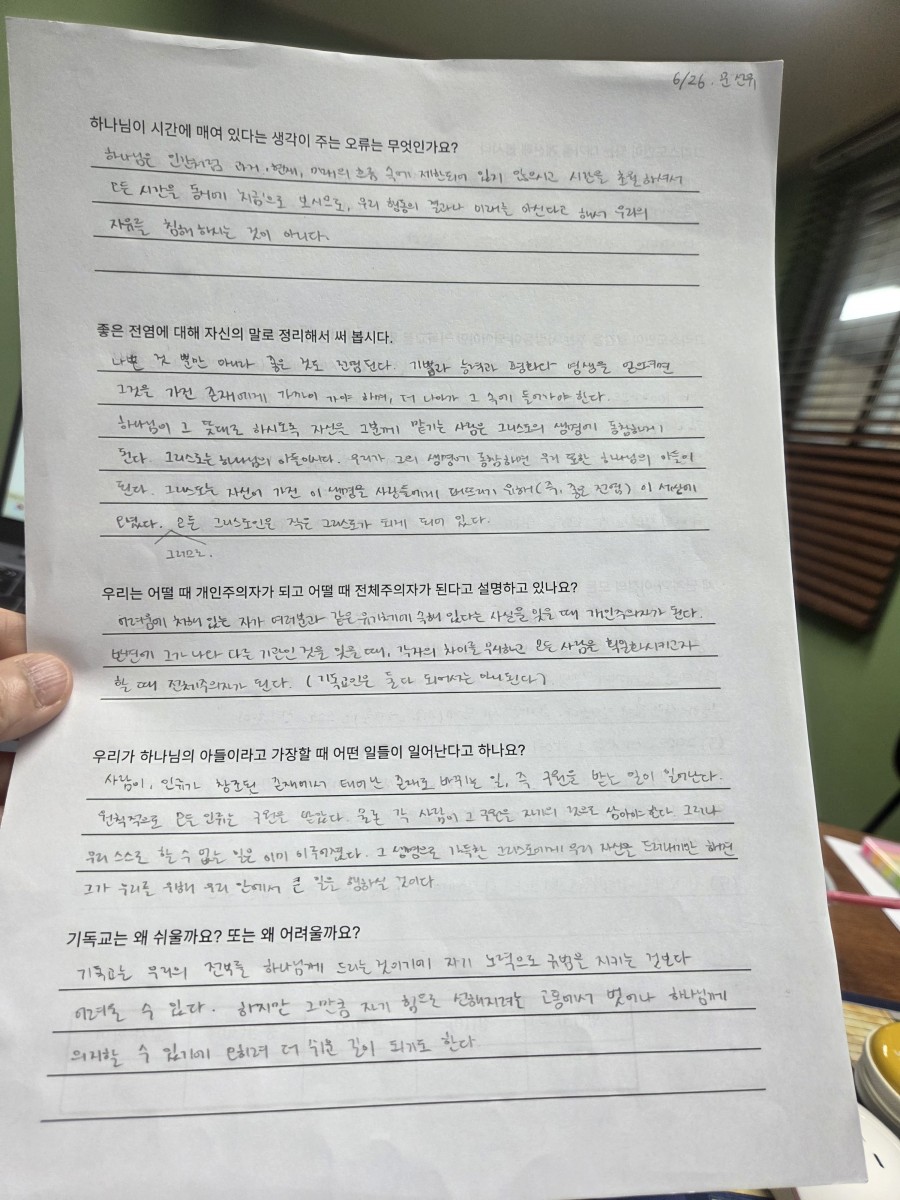 6/26. 문선위
하나님이 시간에 매여 있다는 생각이 주는 오류는 무엇인가요?
하나님은 인간처럼 과거, 현재, 미래의 흐름 속에 제한되어 있지 않으시고 시간을 초월하셔서
모든 시간을 동시에 '지금'으로 보시므로, 우리 행동의 결과나 미래를 아신다고 해서 우리의
자유를 침해하시는 것이 아니다.
좋은 전염에 대해 자신의 말로 정리해서 써 봅시다.
나쁜 것 뿐만 아니라 좋은 것도 전염된다. 기쁨과 능력과 평화와 영생을 얻으려면
그것을 가진 존재에게 가까이 가야 하며, 더 나아가 그 속에 들어가야 한다.
하나님이 그 뜻대로 하시도록 자신을 그분께 맡기는 사람은 그리스도의 생명에 동참하게
된다. 그리스도는 하나님의 아들이시다. 우리가 그의 생명에 동참하면 우리 또한 하나님의 아들이
된다. 그리스도는 자신이 가진 이 생명을 사람들에게 퍼뜨리기 위해(즉, 좋은 전염) 이 세상에
오셨다. 모든 그리스도인은 작은 그리스도가 되게 되어 있다.
그러므로.
우리는 어떨 때 개인주의자가 되고 어떨 때 전체주의자가 된다고 설명하고 있나요?
어려움에 처해 있는 자가 여러분과 같은 유기체에 속해 있다는 사실을 잊을 때 개인주의자가 된다.
반면에 그가 나와 다른 기관인 것을 잊을 때, 각자의 차이를 무시하고 모든 사람을 획일화시키고자
할 때 전체주의자가 된다. (기독교인은 둘 다 되어서는 아니된다)
우리가 하나님의 아들이라고 가장할 때 어떤 일들이 일어난다고 하나요?
사람이, 인류가 창조된 존재에서 태어난 존재로 바뀌는 일, 즉 구원을 받는 일이 일어난다.
원칙적으로 모든 인류는 구원을 받았다. 물론 각 사람이 그 구원을 자기의 것으로 삼아야 한다. 그러나
우리 스스로 할 수 없는 일은 이미 이루어졌다. 그 생명으로 가득한 그리스도에게 우리 자신을 드러내기만 하면
그가 우리를 위해 우리 안에서 큰 일을 행하실 것이다
기독교는 왜 쉬울까요? 또는 왜 어려울까요?
기독교는 우리의 전부를 하나님께 드리는 것이기에 자기 노력으로 규범을 지키는 것보다
어려울 수 있다. 하지만 그만큼 자기 힘으로 선해지려는 고통에서 벗어나 하나님께
의지할 수 있기에 오히려 더 쉬운 길이 되기도 한다